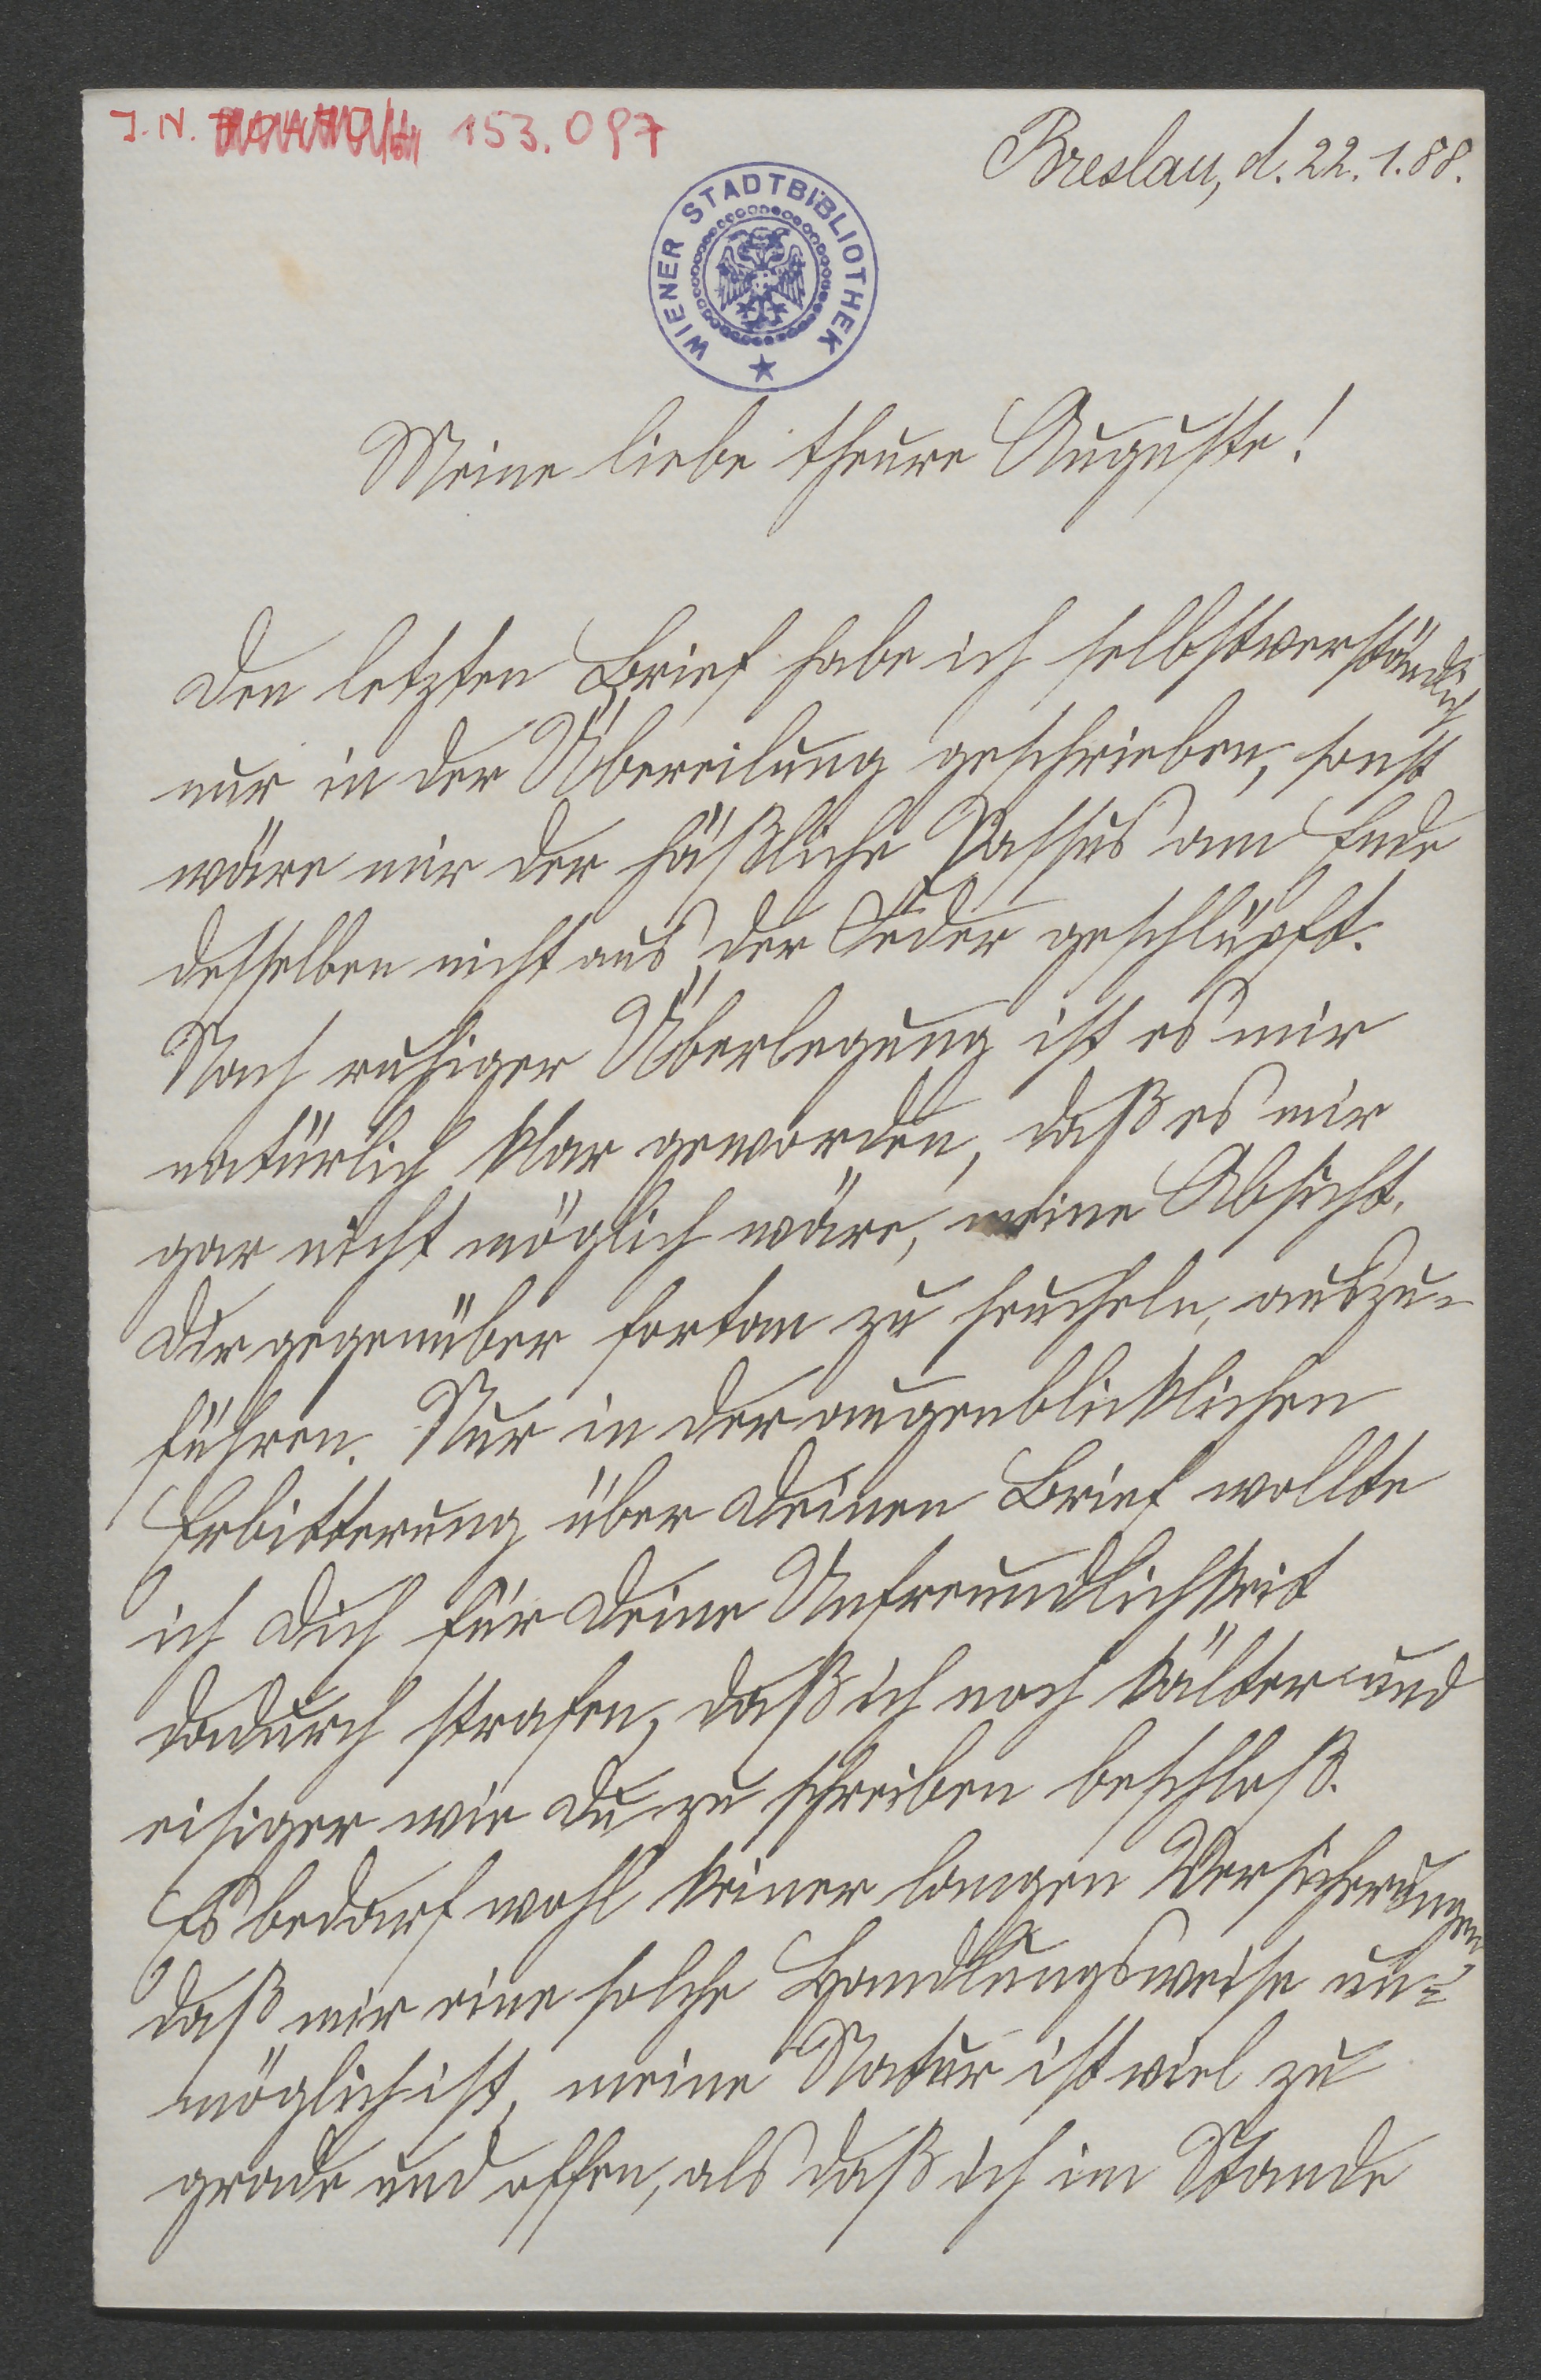 J. N. 153.097
Breslau, d. 22. 1. 88.
WIENER STADTBIBLIOTHEK
Meine liebe theure Auguste!
Den letzten Brief habe ich selbstverständlich
nur in der Übereilung geschrieben, sonst
wäre mir der häßliche Passus am Ende
desselben nicht aus der Feder geschlüpft.
Nach ruhiger Überlegung ist es mir
natürlich klar geworden, daß es mir
gar nicht möglich wäre, meine Absicht,
Dir gegenüber fortan zu heucheln, auszu-
führen. Nur in der augenblicklichen
Erbitterung über Deinen Brief wollte
ich Dich für Deine Unfreundlichkeit
dadurch strafen, daß ich noch kälter und
eisiger wie Du zu schreiben beschloß.
Es bedarf wohl keiner langen Versicherungen,
daß mir eine solche Handlungsweise un-
möglich ist, meine Natur ist viel zu
grade und offen, als daß ich im Stande